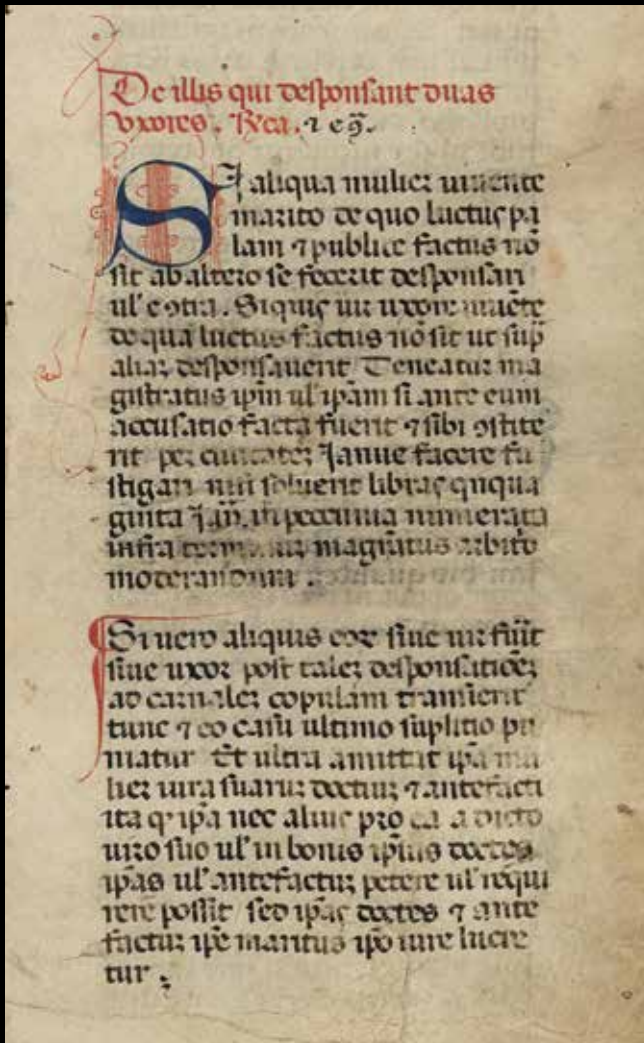 De illis qui desponsant duas
uxores. Rca. ⁊ eꝯ̃.
SI aliqua mulier uiuente
marito de quo luctus pa
lam ⁊ publice factus nō
sit ab altero se fecerit desponsari
ul' eꝯtra. Siquis uir uxore uiuēte
de qua luctus factus nō sit ut sup̄
aliaꝫ desponsauerit Teneatur ma
gistratus ip̄m ul' ip̄am si ante eum
accusatio facta fuerit ⁊ sibi ꝯstite
rit per ciuitateꝫ Janue facere fu
stigari nisi soluerit libras qnqua
ginta Jan̄. in peccunia numerata
infra magrātus arbitō
moderandum.
Si uero aliquis eoꝝ siue uir fūit
siue uxor post taleꝫ desponsationeꝫ
ad carnaleꝫ copulam transierit
tunc ⁊ eo casu ultimo suplitio pu
niatur Et ultra amittat ip̄a mu
lier iura suaruꝫ doctiuꝫ ⁊ antefacti
ita ꝙ ip̄a nec alius pro ea a dicto
uiro suo ul' in bonis ip̄ius doctes
ip̄as ul' antefactuꝫ petere ul' requi
rere possit sed ip̄as doctes ⁊ ante
factuꝫ ip̄e maritus ip̄o iure lucre
tur.